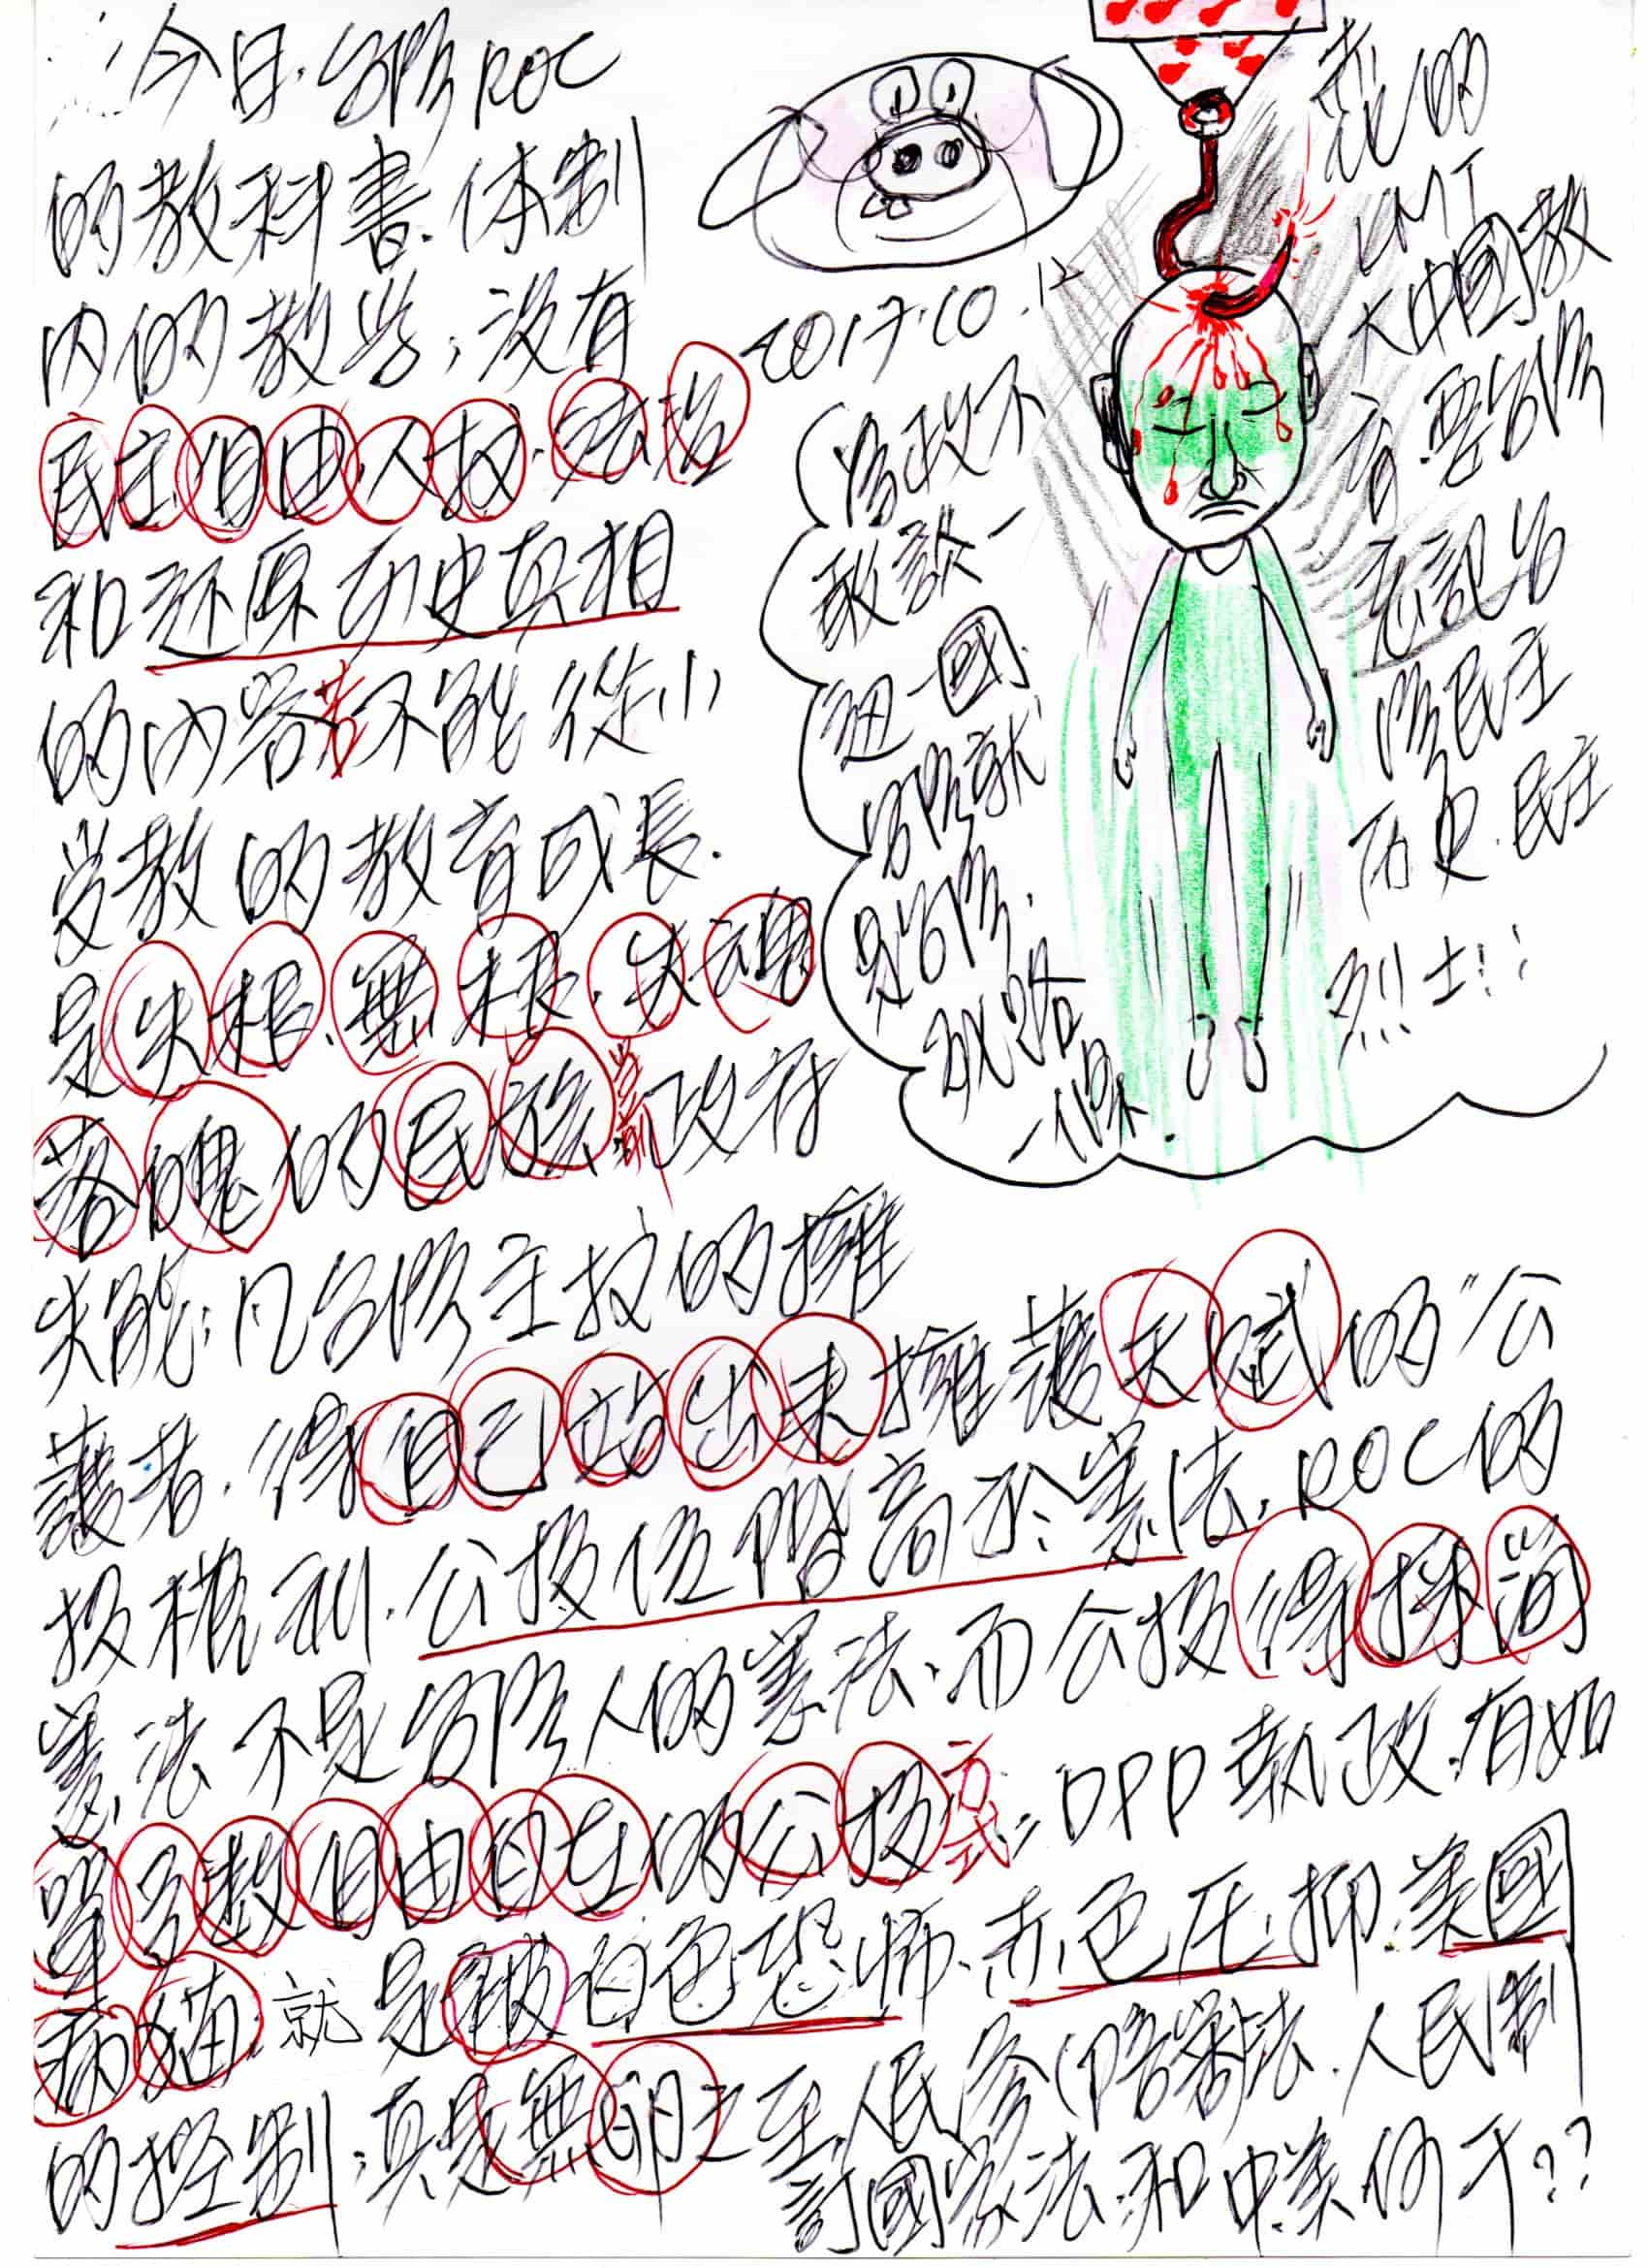 今日.台灣ROC
的教科書.体制
內的教学,沒有
民主自由人权.法治
和还原历史真相
的內容者不能從小
受教的教育成長.
是失根.無根.失魂
落魄的民族.当前政府
失能:凡台灣主权的擁
護者.得自己站出來擁護天賦的"公
投權利.公投位階高於憲法.ROC的
憲法不是台灣人的憲法.而公投得採简
單多数自由自在的公投式:DPP執政.有如
病猫.就是被白色恐怖.赤色压抑.美國
的控制;真是無卵之至.人民參(陪審)法.人民制
訂國家法:和中美何干??
2017.10.12
為政不
敢談一
边一國.
台灣就
是台灣.
就
一條.
我的
KMT
大中國教
育.要台灣
忘記台
灣民主
历史.民主
烈士!!